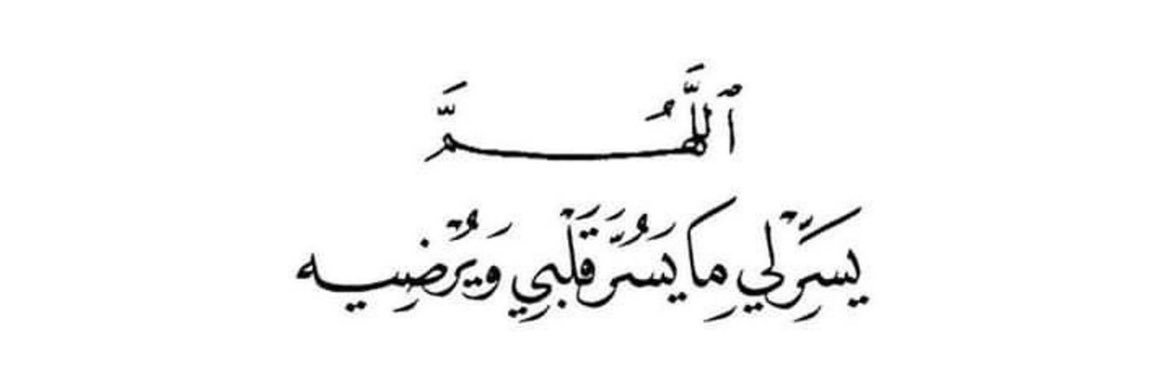 ٱللَّهُمَّ
يَسِّرْ لِي مِا يَسُرَّ قَلْبِي وَيُرْضِيه